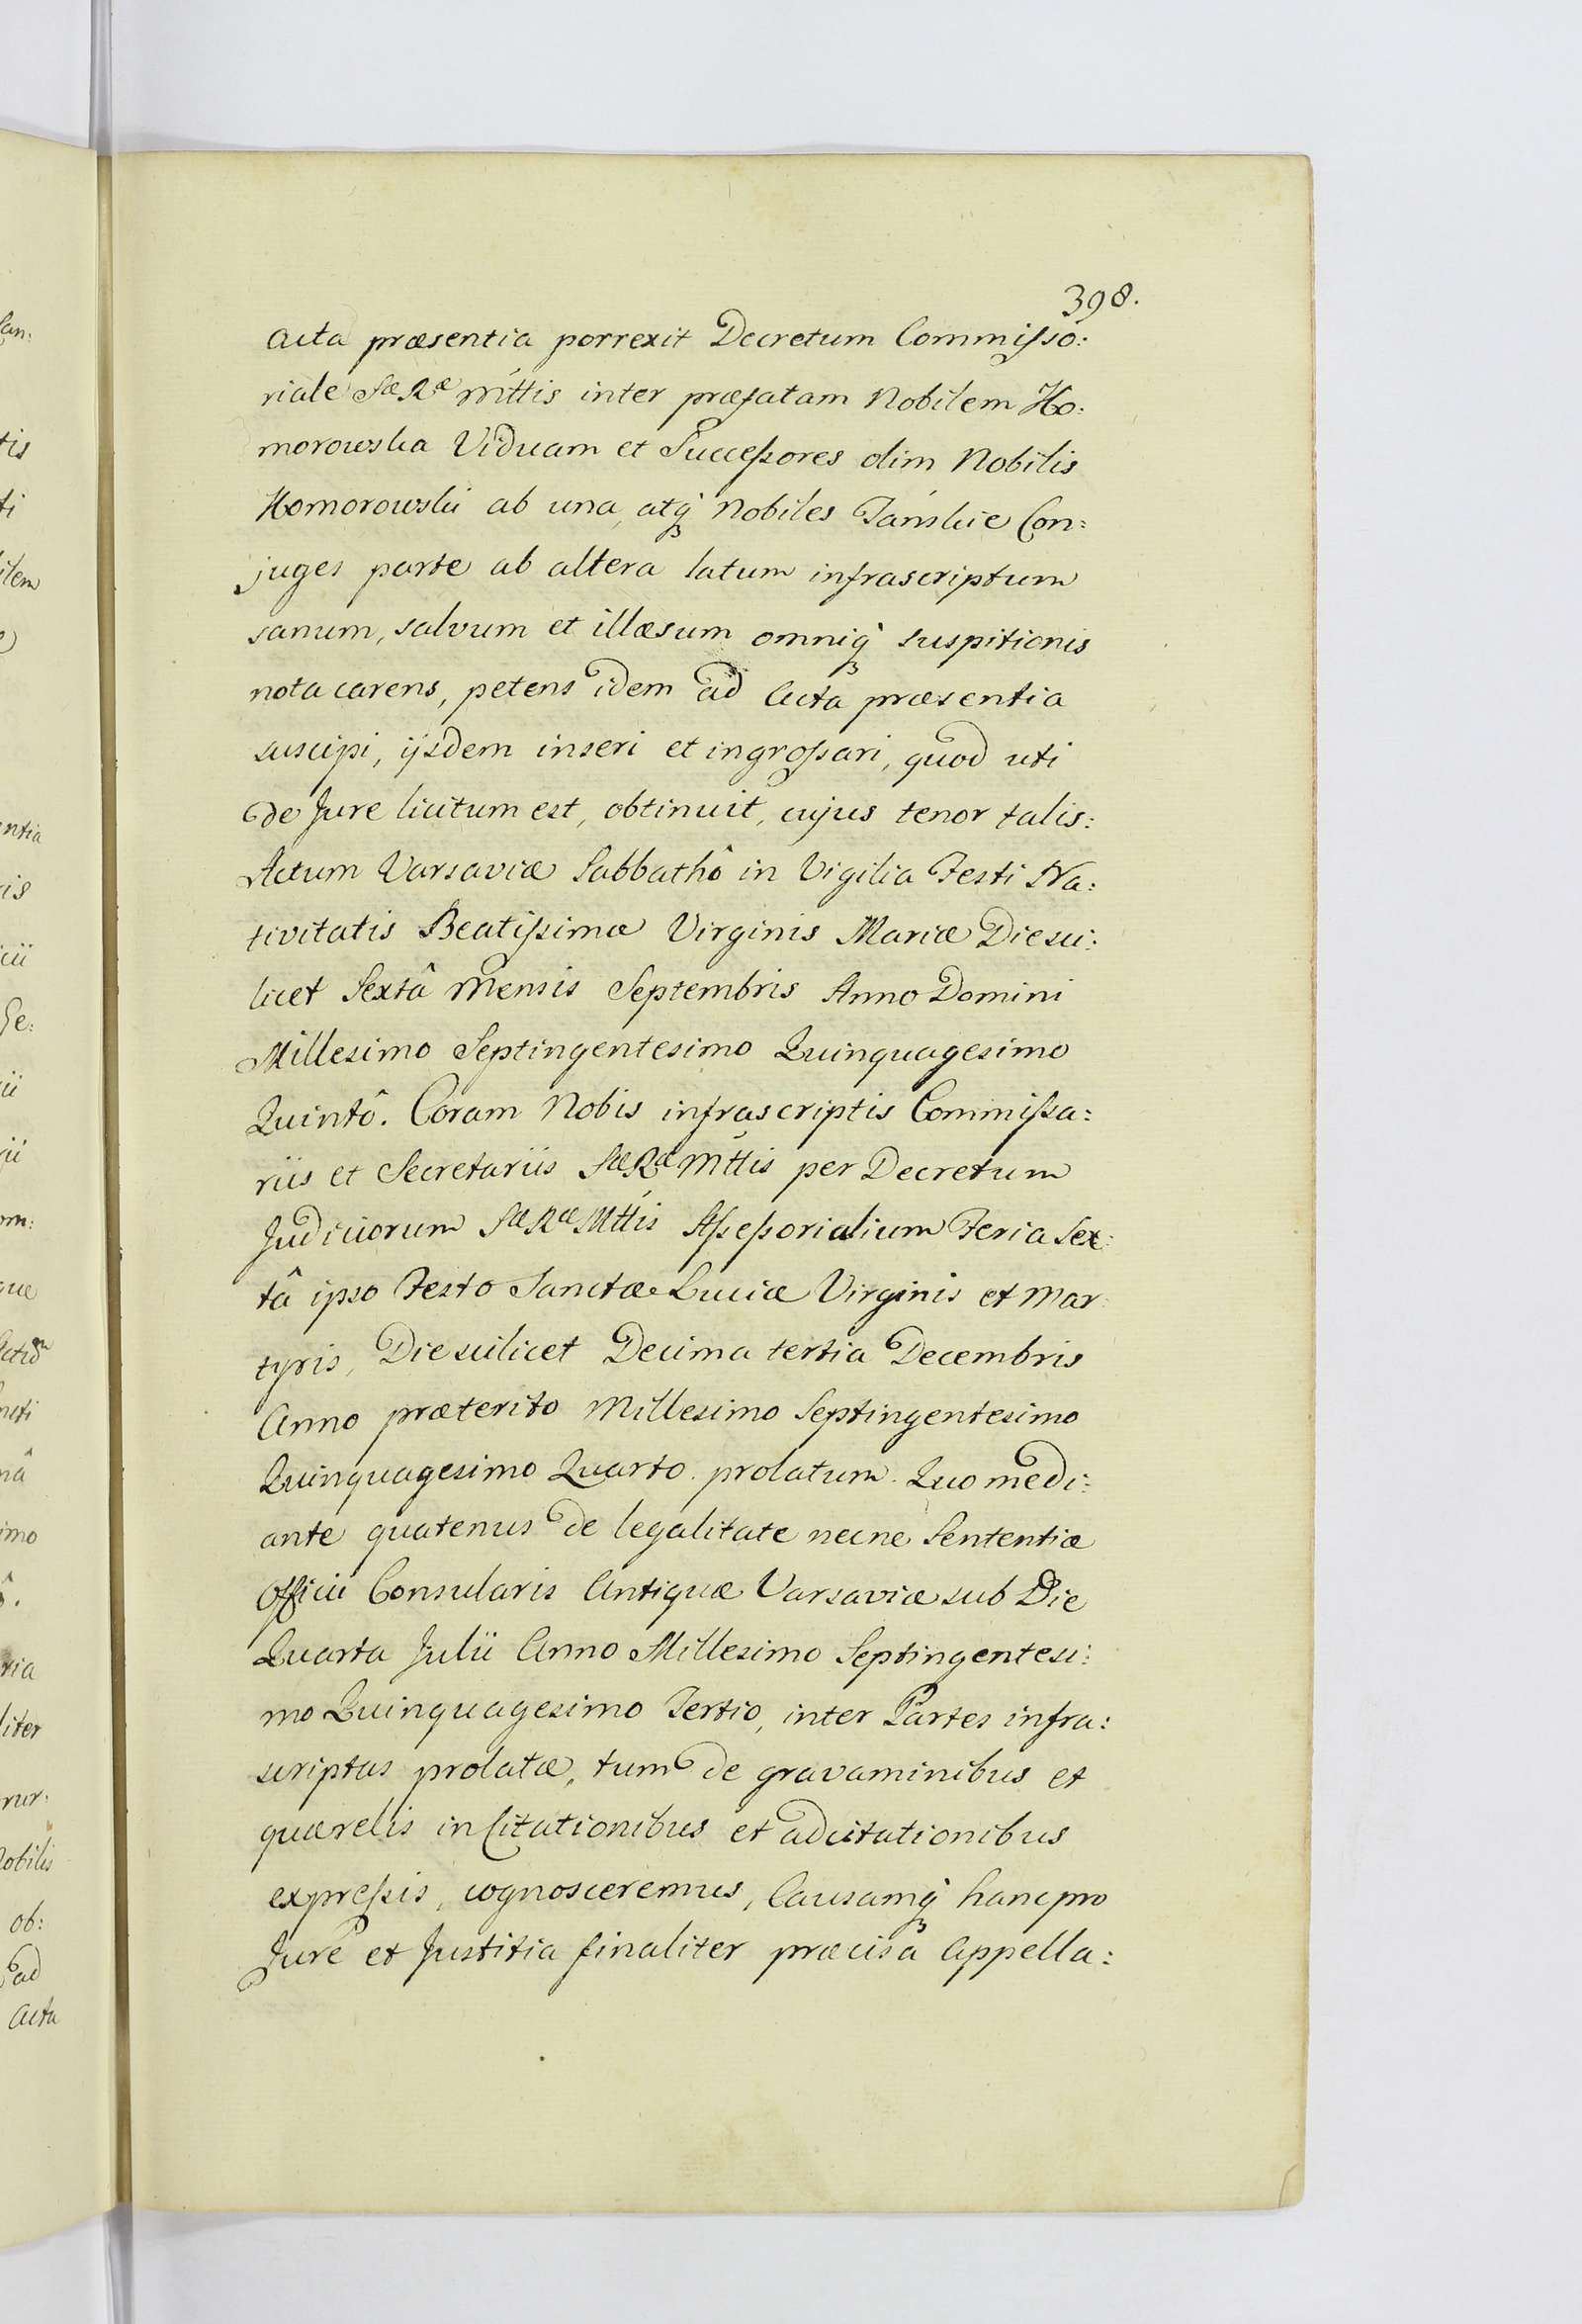 398.
acta præsentia porrexit Decretum Commisso:
riale Sæ Ræ Mttis inter præfatam Nobilem Ho:
morowska Viduam et Successores olim Nobilis
Homorowski ab una, atq́ꝫ Nobiles Tańskie Con:
juges parte ab altera latum infrascriptum
sanum, salvum et illæsum omniq́ꝫ suspitionis
nota carens, petens idem ad Acta præsentia
suscipi, ijsdem inseri et ingrossari, quod uti
de Jure licitum est, obtinuit, cujus tenor talis:
Actum Varsaviæ Sabbathô in Vigilia Festi Na:
tivitatis Beatissimæ Virginis Mariæ Die sci:
licet Sextâ Mensis Septembris Anno Domini
Millesimo Septingentesimo Quinquagesimo
Quintô. Coram Nobis infrascriptis Commissa:
riis et Secretariis Sæ Ræ Mttis per Decretum
Judiciorum Sæ Ræ Mttis Assessorialium Feria Sex:
tâ ipso Festo Sanctæ Luciæ Virginis et Mar
tyris, Die scilicet Decima tertia Decembris
Anno præterito Millesimo Septingentesimo
Quinquagesimo Quarto. prolatum. Quo medi:
ante quatenus de legalitate necne Sententiæ
Officii Consularis Antiquæ Varsaviæ sub Die
Quarta Julii Anno Millesimo Septingentesi:
mo Quinquagesimo Tertio, inter Partes infra:
scriptas prolatæ, tum de gravaminibus et
quærelis in Citationibus et adcitationibus
expressis, cognosceremus, Causamq́ꝫ hanc pro
Jure et Justitia finaliter præcisâ Appella: